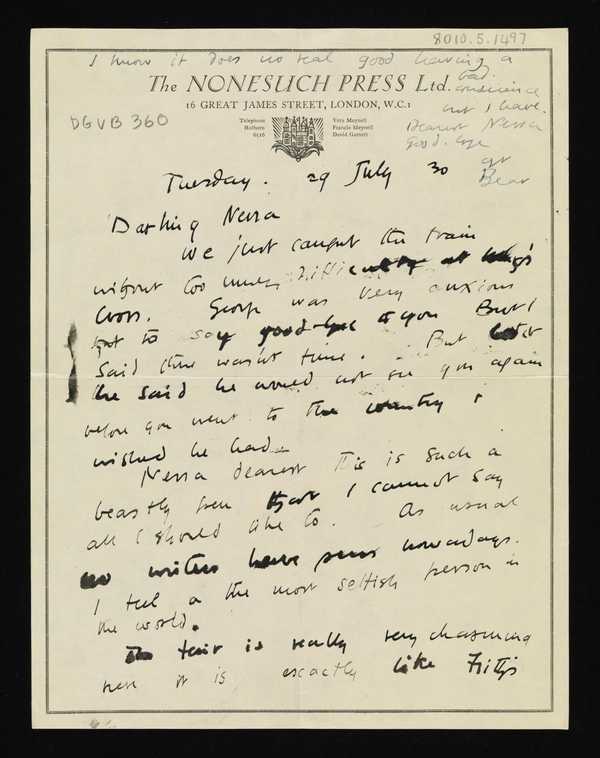 8010.5.1497
I know it does no real good having a
bad
conscience
but I have.
Dearest Nessa
Good-bye
yr
Bear
The NONESUCH PRESS Ltd.
16 GREAT JAMES STREET, LONDON, W.C.1
DGVB 360
Telephone
Holborn
6126
Vera Meynell
Francis Meynell
David Garnett
Tuesday. 29 July 30
Darling Nessa
We just caught the train
without too much difficulty at King's
Cross. George was very anxious
to say good-bye to you But I
said there wasn't time. But later
he said he would not see you again
before you went to the country I
wished he had.
Nessa dearest This is such a
beastly pen that I cannot say
all I should like to. As usual
no writers have pens nowadays.
I feel the most selfish person in
the world.
fair is really very charming
here it is exactly like